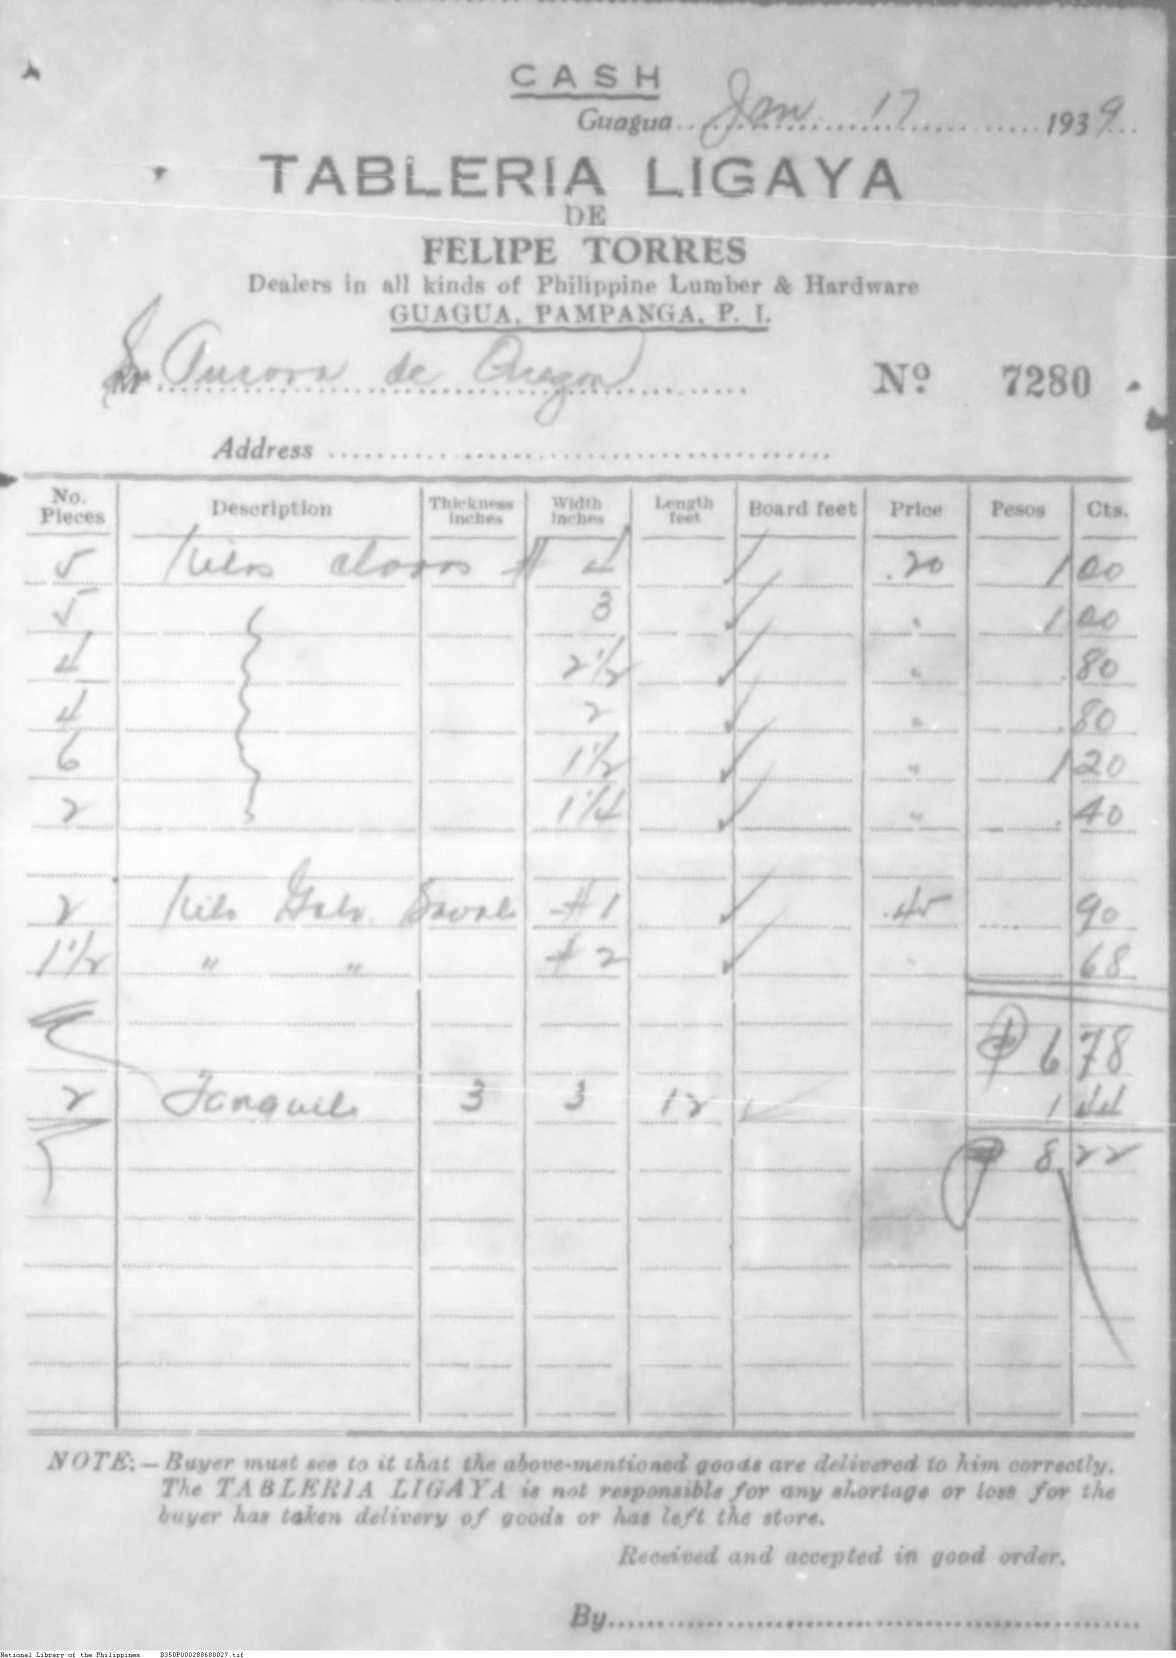 CASH
Guagua Jan 17 1939
TABLERIA LIGAYA
DE
FELIPE TORRES
Dealers in all kinds of Philippine Lumber & Hardware
GUAGUA, PAMPANGA, P. I.
Aurora de
Nº 7280
Address
No. Pieces Description Thickness inches Width inches Length feet Board feet Price Pesos Cts.
5 Kilos clavos # 4 .20 1 00
5 3 " 1 00
4 2 1/2 " .80
4 2 " .80
6 1 1/2 " 1 20
2 1 1/4 " .40
2 Kilo Galv. #1 .45 90
1 1/2 " " #2 " 68
₱ 6 78
2 Tanguile 3 3 12 1 44
₱ 8 22
NOTE:—Buyer must see to it that the above-mentioned goods are delivered to him correctly.
The TABLERIA LIGAYA is not responsible for any shortage or loss for the
buyer has taken delivery of goods or has left the store.
Received and accepted in good order.
By
National Library of the Philippines D350P000288680027.tif